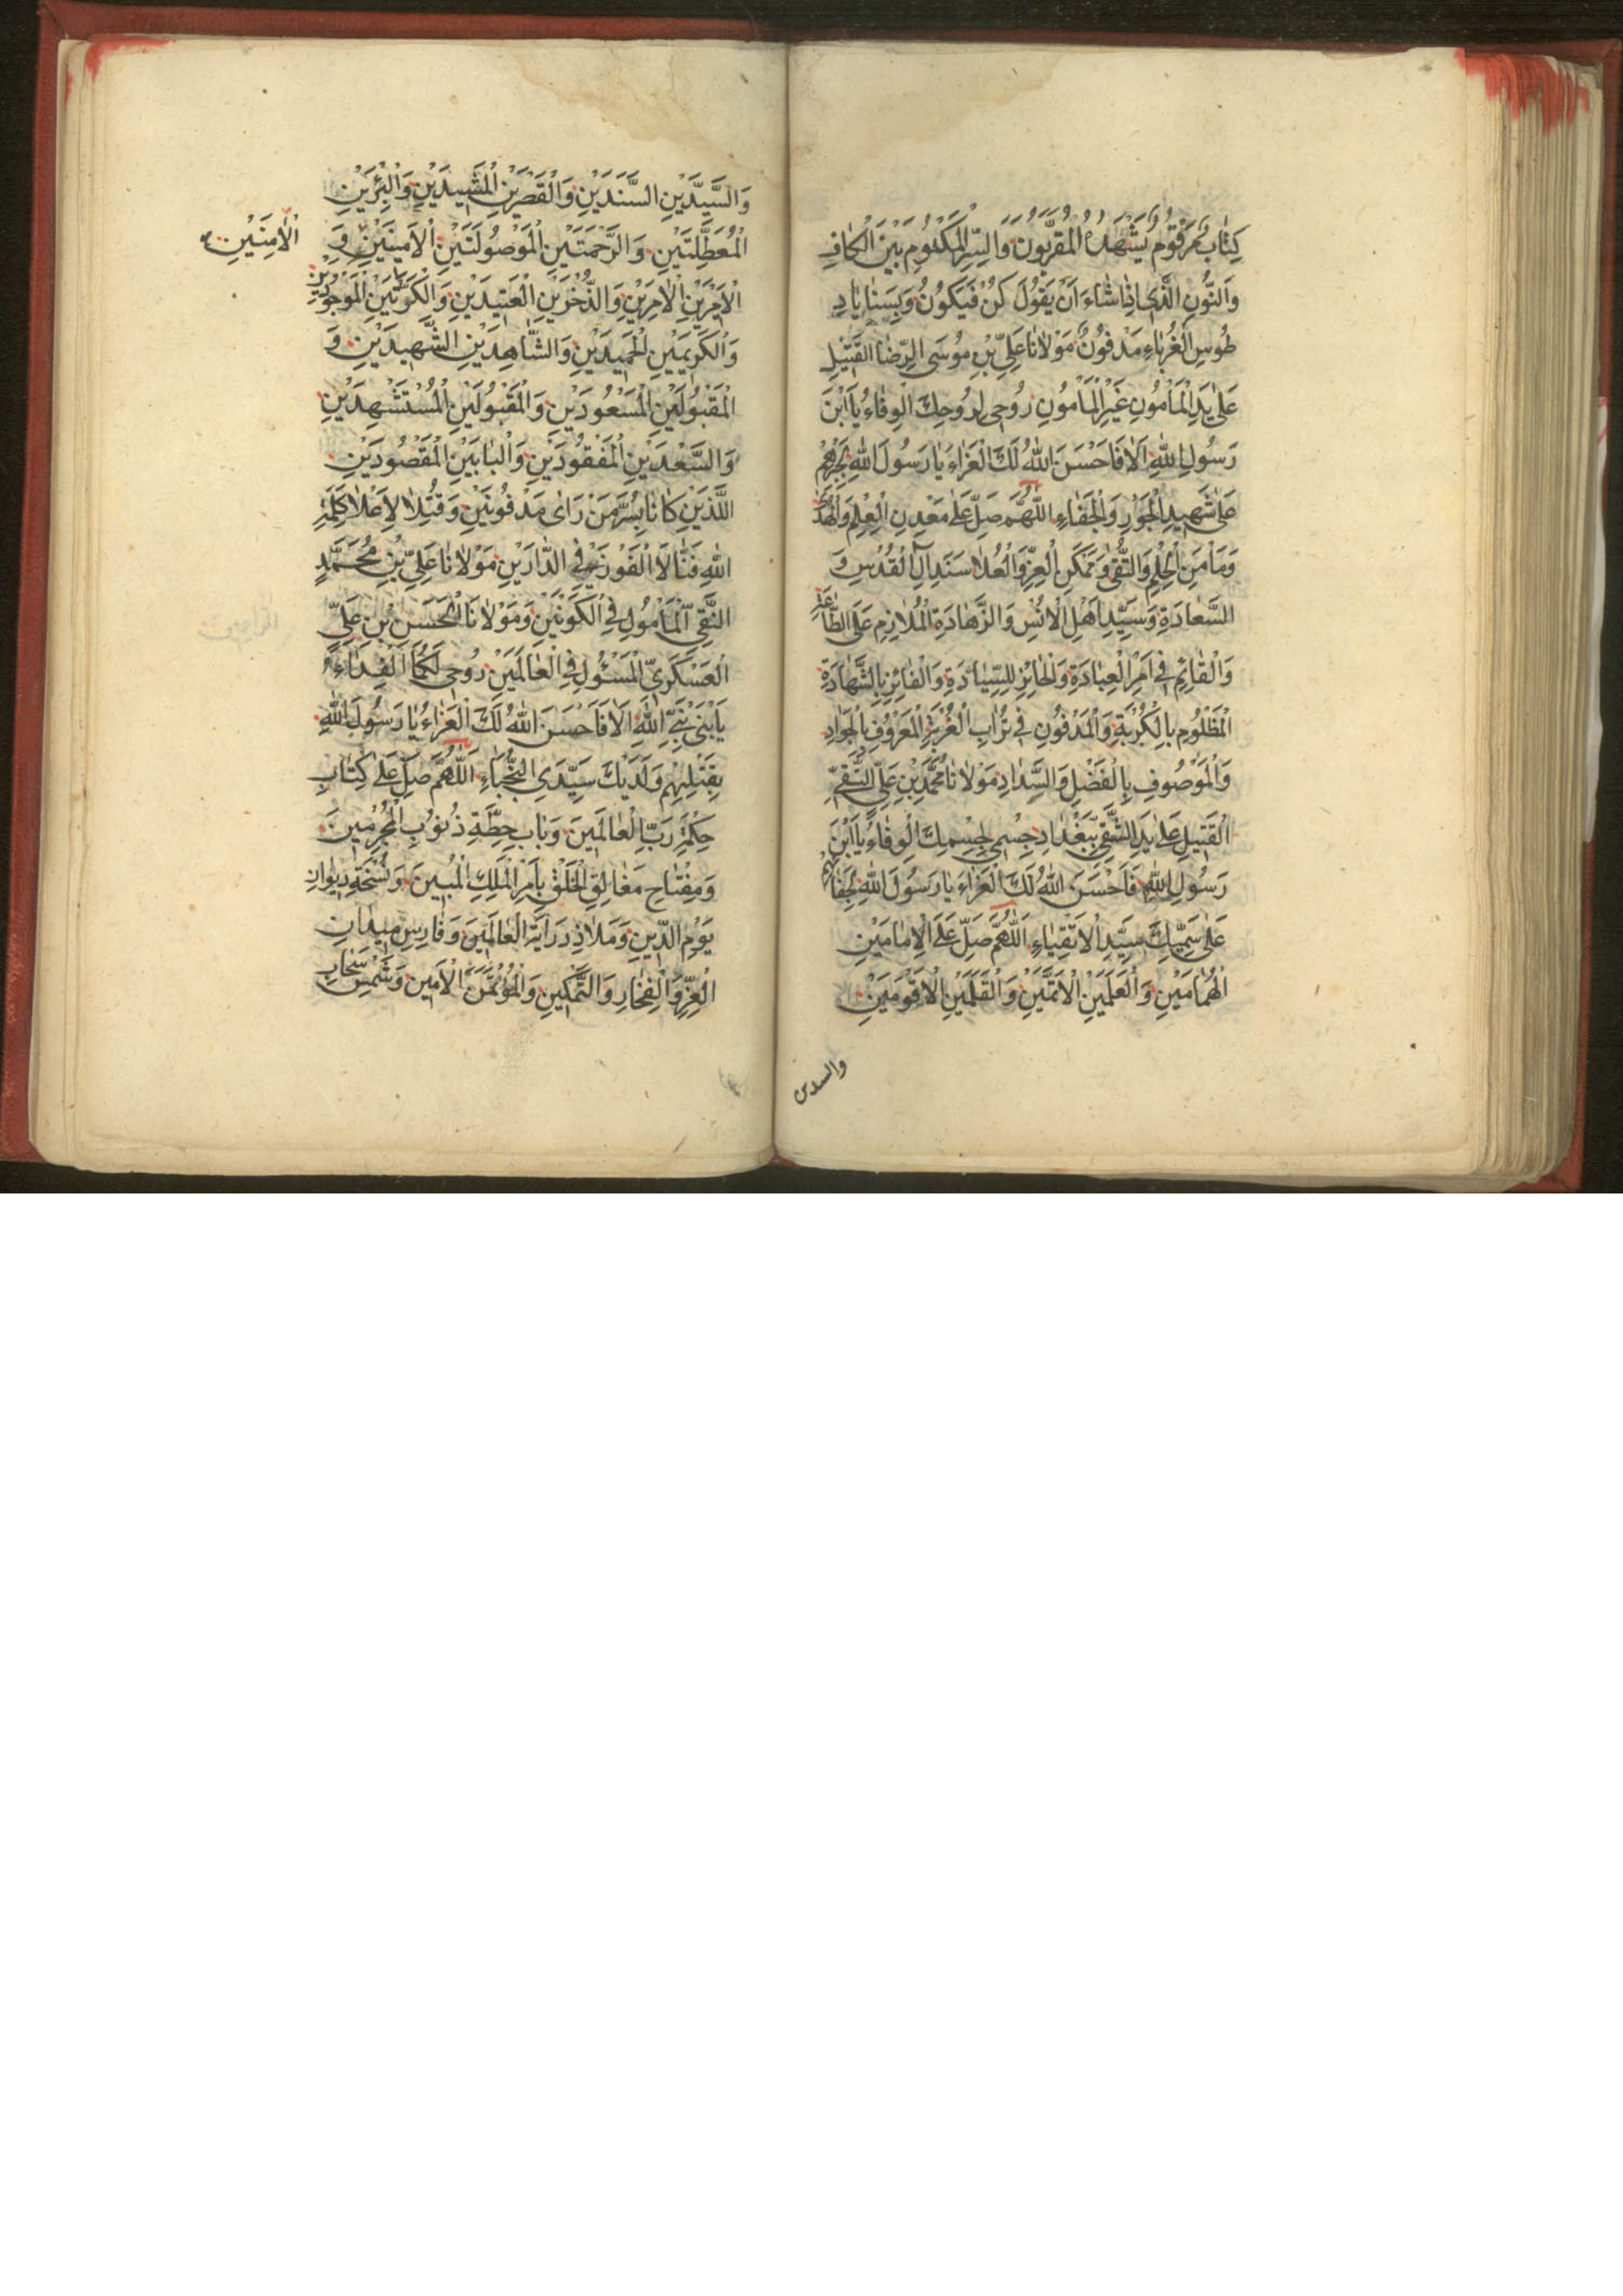 كِتٰابٌ مَرْقُومٌ يَشْهَدُهُ الْمُقَرَّبُونَ وَالسِّرِّ الْمَكْتُومِ بَيْنَ الْكٰافِ
وَالنُّونِ الَّذِي اِذٰا شٰاءَ اَنْ يَقُولَ كُنْ فَيَكُونُ وَبِسَنٰايٰادِ
طُوسِ الْغُرَبٰاءِ مَدْفُونٌ مَوْلاٰنٰا عَلِيِّ بْنِ مُوسَى الرِّضٰا الْقَتِيْلِ
عَلٰى يَدِ الْمَأْمُونِ غَيْرِ الْمَأْمُونِ رُوحِي لِرُوحِكَ الْوِقٰاءُ يَا ابْنَ
رَسُولِ اللّٰهِ اَلاٰ فَاَحْسَنَ اللّٰهُ لَكَ الْعَزٰاءَ يٰا رَسُولَ اللّٰهِ بِجُرْمِهِمْ
عَلٰى شَهِيدِ الْجَوْرِ وَالْجَفٰاءِ اَللّٰهُمَّ صَلِّ عَلٰى مَعْدِنِ الْعِلْمِ وَالْهُدٰى
وَمَأْمَنِ الْحِلْمِ وَالتُّقٰى وَمَمْكَنِ الْعِزِّ وَالْعُلاٰ سَنَدِ اٰلِ الْقُدْسِ وَ
السَّعٰادَةِ وَسَيِّدِ اَهْلِ الْاُنْسِ وَالزَّهٰادَةِ الْمُلاٰزِمِ عَلَى الطّٰاعَةِ
وَالْقٰائِمِ فِي اَمْرِ الْعِبٰادَةِ وَالْحٰائِزِ لِلسِّيٰادَةِ وَالْفٰائِزِ بِالشَّهٰادَةِ
الْمَظْلُومِ بِالْكُرْبَةِ وَالْمَدْفُونِ فِي تُرٰابِ الْغُرْبَةِ الْمَعْرُوفِ بِالْجَوٰادِ
وَالْمَوْصُوفِ بِالْفَضْلِ وَالسَّدٰادِ مَوْلاٰنٰا مُحَمَّدِ بْنِ عَلِيٍّ التَّقِيِّ
الْقَتِيلِ عَلٰى يَدِ الشَّقِيِّ بِبَغْدٰادَ جِسْمِي لِجِسْمِكَ الْوِقٰاءُ يَا ابْنَ
رَسُولِ اللّٰهِ فَاَحْسَنَ اللّٰهُ لَكَ الْعَزٰاءَ يٰا رَسُولَ اللّٰهِ بِجَفٰائِهِمْ
عَلٰى سَمِيِّكَ سَيِّدِ الْاَتْقِيٰاءِ اَللّٰهُمَّ صَلِّ عَلَى الْاِمٰامَيْنِ
الْهُمٰامَيْنِ وَالْعَلَمَيْنِ الْاَتَمَّيْنِ وَالْقَلَمَيْنِ الْاَقْوَمَيْنِ
والسدىں
وَالسَّيِّدَيْنِ السَّنَدَيْنِ وَالْقَصْرَيْنِ الْمَشِيدَيْنِ وَالْبِئْرَيْنِ
الْمُعَطَّلَتَيْنِ وَالرَّحْمَتَيْنِ الْمَوْصُولَتَيْنِ الْاَمِينَيْنِ وَ
الْاٰمِنَيْنِ
الْاَمِرَيْنِ الْاٰمِرَيْنِ وَالذُّخْرَيْنِ الْعَتِيدَيْنِ وَالْكَوْنَيْنِ الْمَوْجُودَيْنِ
وَالْكَرِيمَيْنِ الْحَمِيدَيْنِ وَالشّٰاهِدَيْنِ الشَّهِيدَيْنِ وَ
الْمَقْبُولَيْنِ الْمَسْعُودَيْنِ وَالْمَقْبُولَيْنِ الْمُسْتَشْهِدَيْنِ
وَالسَّعْدَيْنِ الْمَفْقُودَيْنِ وَالْبٰابَيْنِ الْمَقْصُودَيْنِ
اللَّذَيْنِ كٰانٰا بِسُرَّ مَنْ رَاٰى مَدْفُونَيْنِ وَقُتِلاٰ لِاِعْلاٰ كَلِمَةِ
اللّٰهِ فَنٰالاَ الْفَوْزَ فِي الدّٰارَيْنِ مَوْلاٰنٰا عَلِيِّ بْنِ مُحَمَّدٍ
النَّقِيِّ الْمَأْمُولِ فِي الْكَوْنَيْنِ وَمَوْلاٰنَا الْحَسَنِ بْنِ عَلِيٍّ
الْعَسْكَرِيِّ الْمَسْئُولِ فِي الْعٰالَمَيْنِ رُوحِي لَكُمَا الْفِدٰاءُ
يٰابْنَيْ نَبِيِّ اللّٰهِ اَلاٰ فَاَحْسَنَ اللّٰهُ لَكَ الْعَزٰاءُ يٰا رَسُولَ اللّٰهِ
بِقَتْلِهِمْ وَلَدَيْكَ سَيِّدَيِ النُّجَبٰاءِ اَللّٰهُمَّ صَلِّ عَلٰى كِتٰابِ
حِكْمَةِ رَبِّ الْعٰالَمِينَ وَبٰابِ حِطَّةِ ذُنُوبِ الْمُجْرِمِينَ
وَمِفْتٰاحِ مَغٰالِقِ الْخَلْقِ بِاَمْرِ الْمَلِكِ الْمُبِينَ وَنُسْخَةِ دِيوٰانِ
يَوْمِ الدِّينِ وَمَلاٰذِ دَرٰايَةِ الْعٰالَمِينَ وَفٰارِسِ مَيْدٰانِ
الْعِزِّ وَالْفِخٰارِ وَالتَّمْكِينِ وَالْمُؤْتَمَنِ الْاَمِينِ وَشَمْسِ